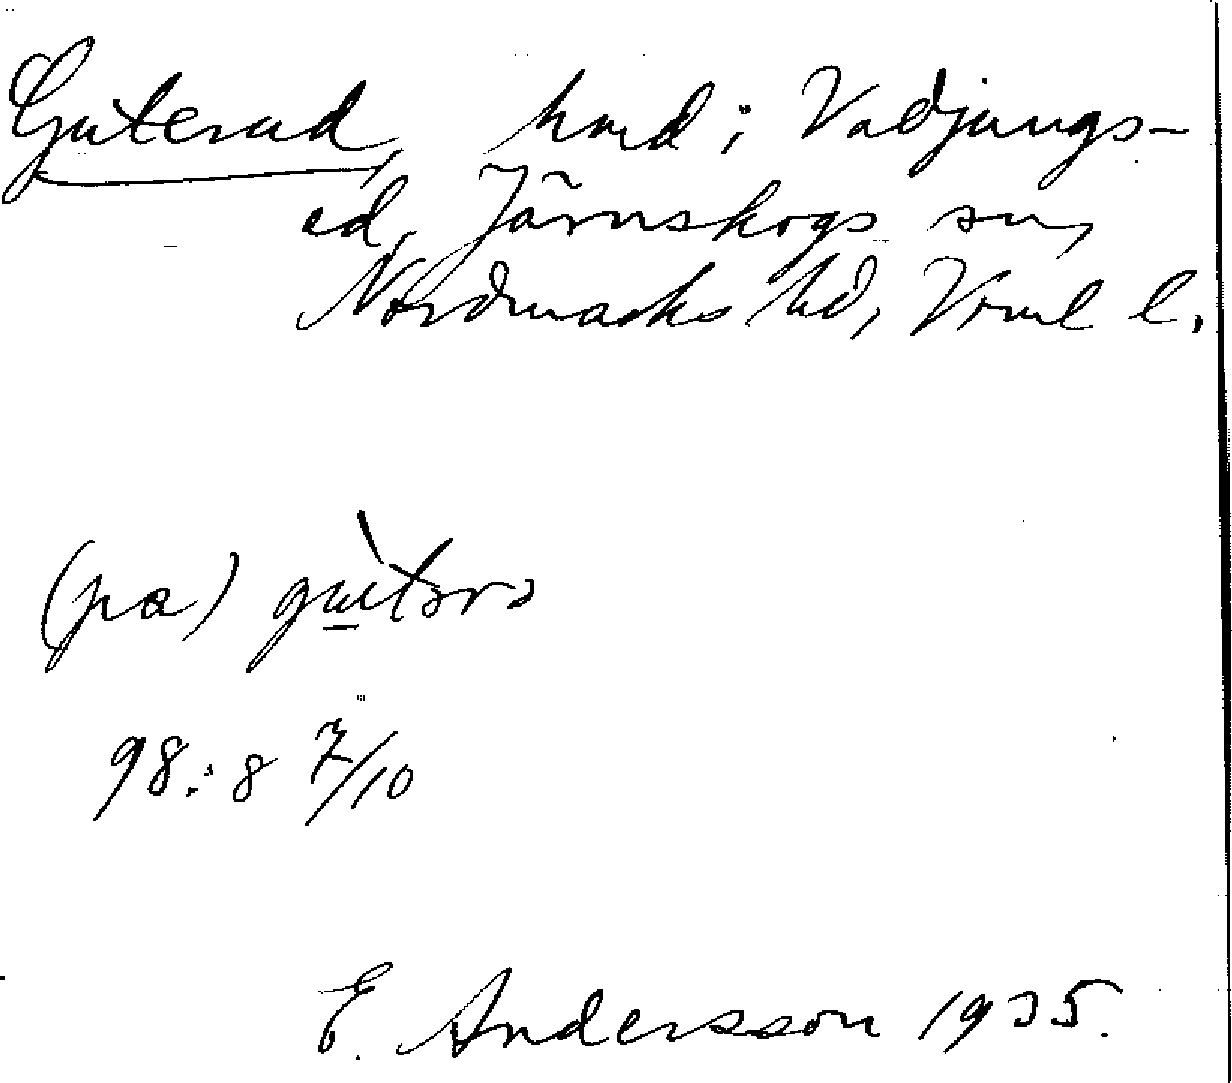 Guterud, hmd i Vadjungs-
ed, Järnskogs sn,
Nordmarks hd, Vrml l.
(pa) gu̲tərə
98:8 7/10
E. Andersson 1935.